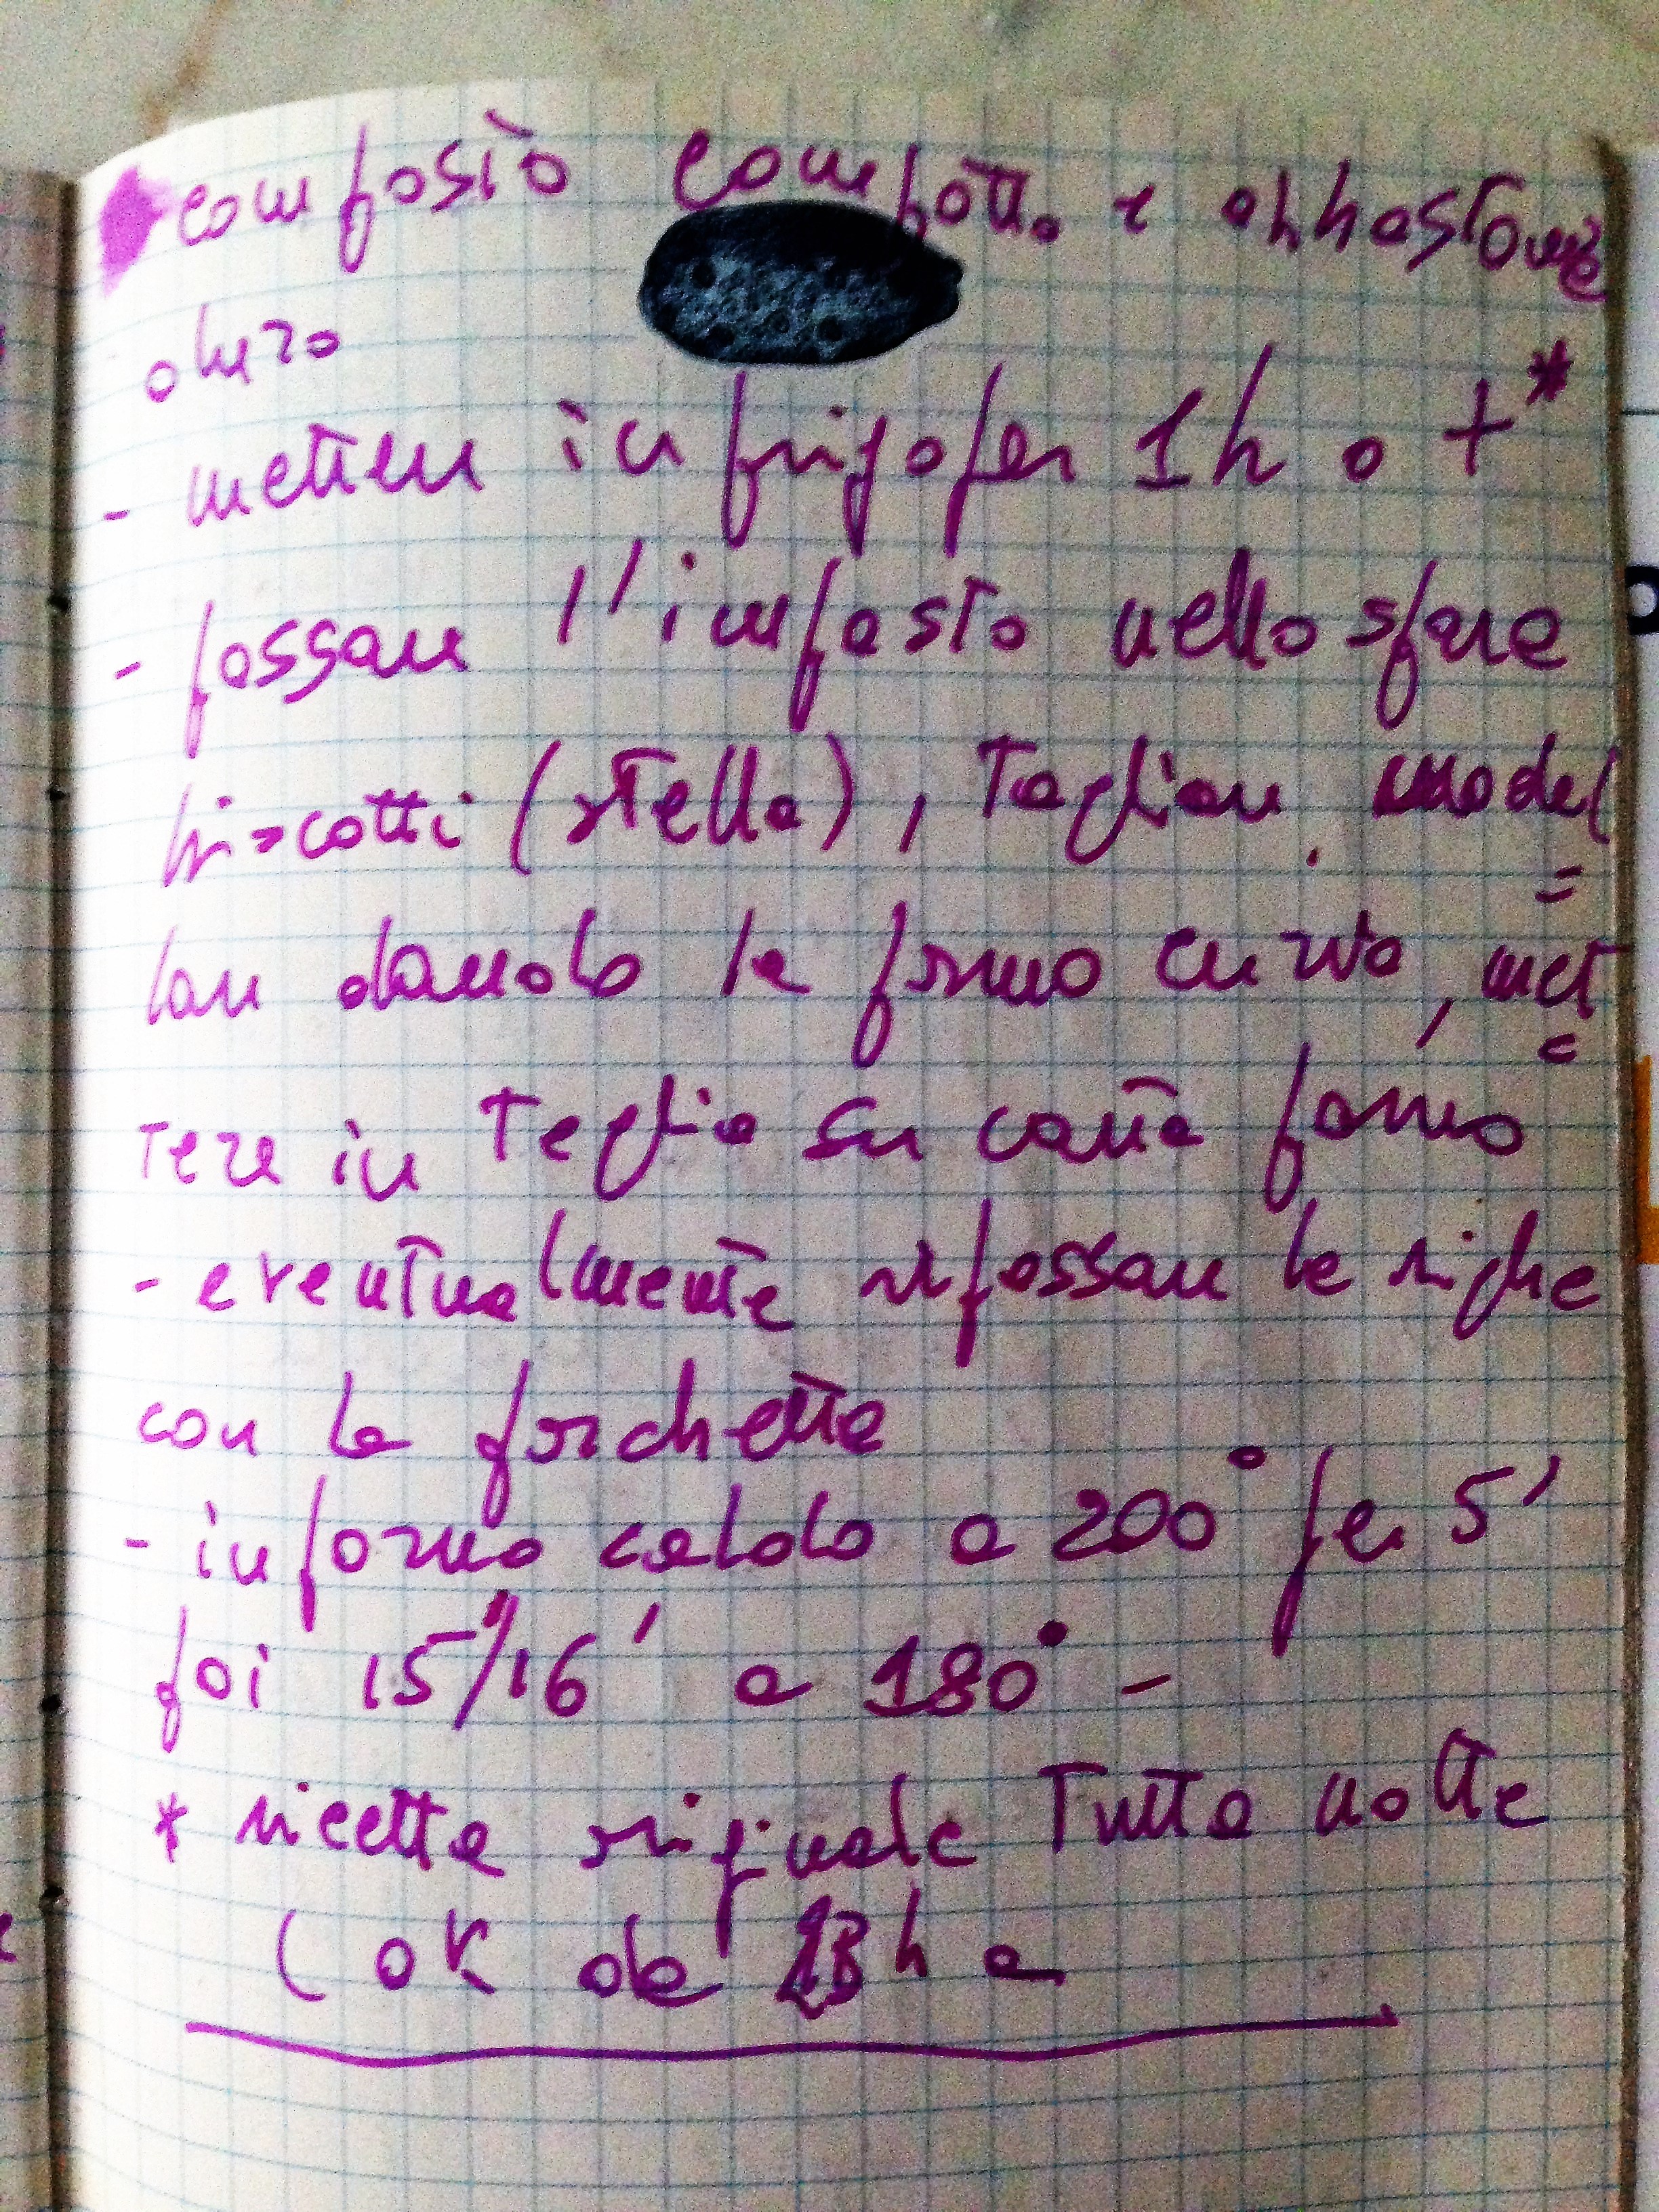 composto compatto e abbastanza
duro
- mettere in frigofer 1h o + *
- passare l'impasto nello spara
biscotti (stella), tagliare, model
=
lare dando la forma curva, met
=
tere in teglia su carta forno
- eventualmente ripassare le righe
con la forchetta
- in forno caldo a 200° per 5'
poi 15'/16' a 180° -
* ricetta originale Tutta notte
(OK da h a